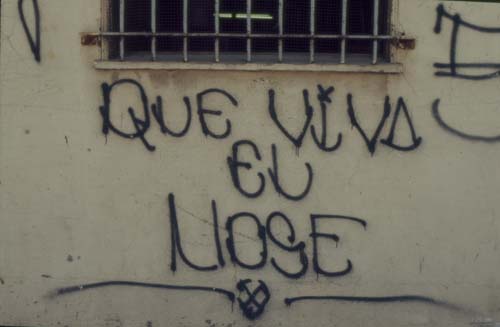 QUE VIVA
EU
NOSE